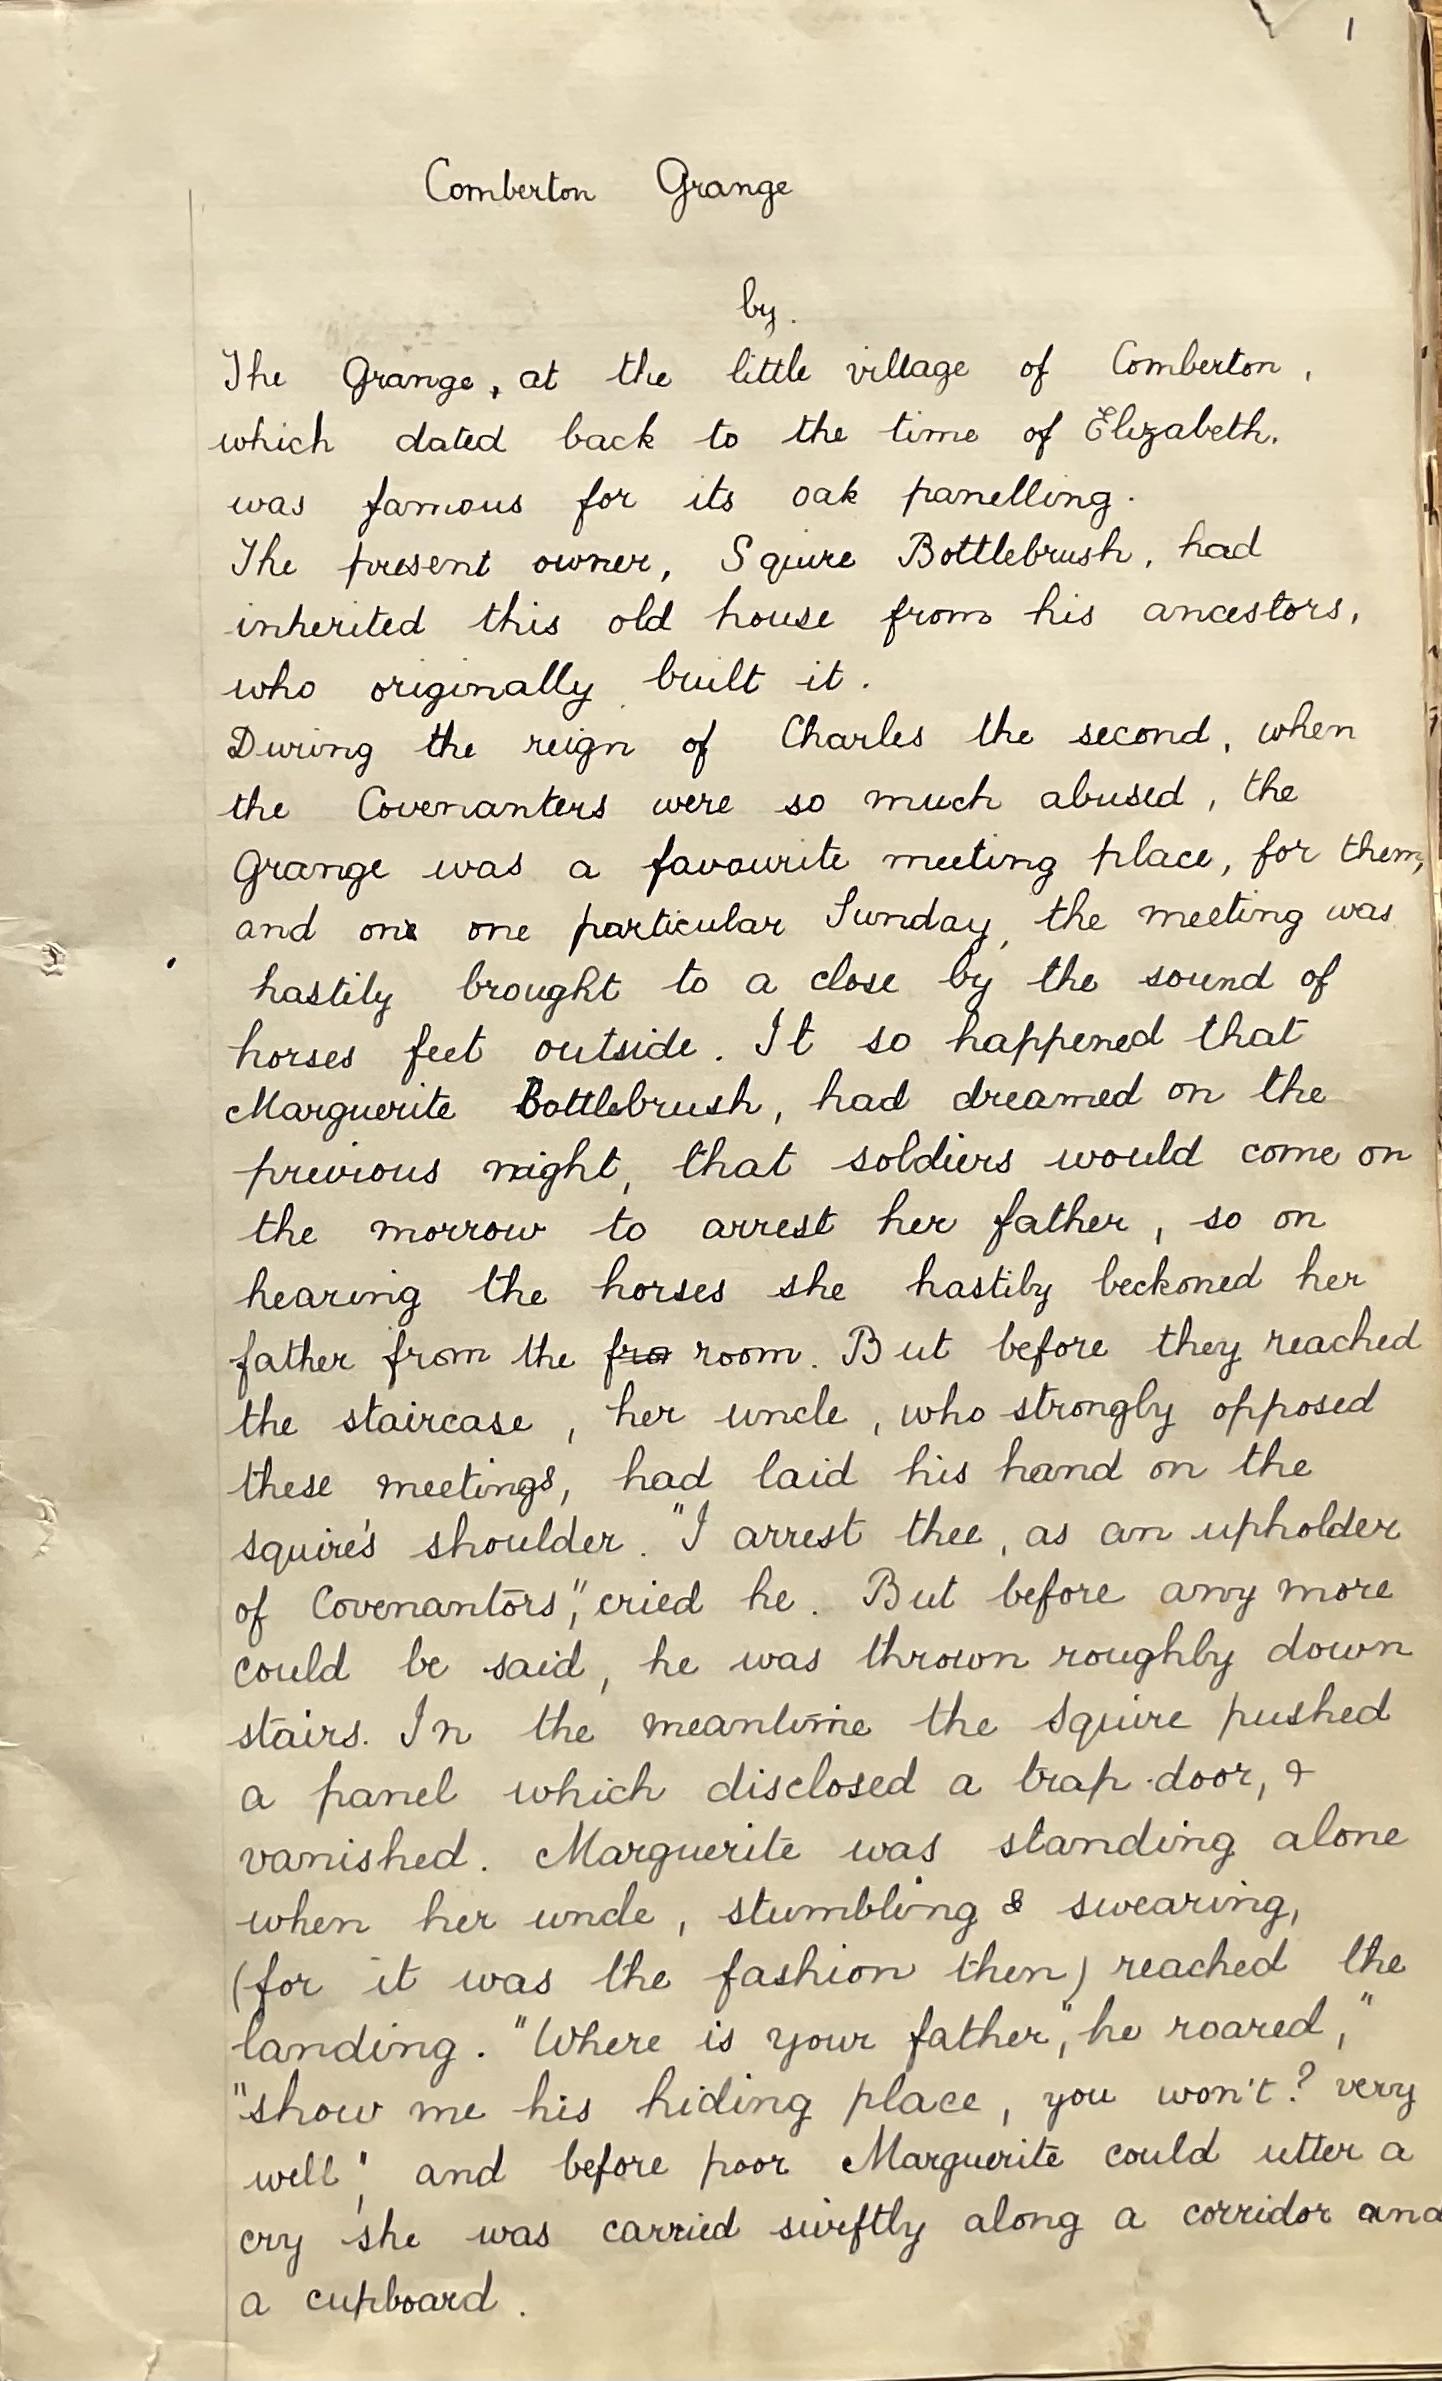 1
Comberton Grange
by.
The Grange, at the little village of Comberton,
which dated back to the time of Elizabeth,
was famous for its oak panelling.
The present owner, Squire Bottlebrush, had
inherited this old house from his ancestors,
who originally built it.
During the reign of Charles the second, when
the Covenanters were so much abused, the
Grange was a favourite meeting place, for them,
and on one particular Sunday, the meeting was
hastily brought to a close by the sound of
horses feet outside. It so happened that
Marguerite Bottlebrush, had dreamed on the
previous night, that soldiers would come on
the morrow to arrest her father, so on
hearing the horses she hastily beckoned her
father from the fro room. But before they reached
the staircase, her uncle, who strongly opposed
these meetings, had laid his hand on the
squire's shoulder. "I arrest thee, as an upholder
of Covenantors", cried he. But before any more
could be said, he was thrown roughly down
stairs. In the meantime the Squire pushed
a panel which disclosed a trap-door, &
vanished. Marguerite was standing alone
when her uncle, stumbling & swearing,
(for it was the fashion then) reached the
landing. "Where is your father", he roared,"
"show me his hiding place, you won't? very
well", and before poor Marguerite could utter a
cry she was carried swiftly along a corridor and
a cupboard.